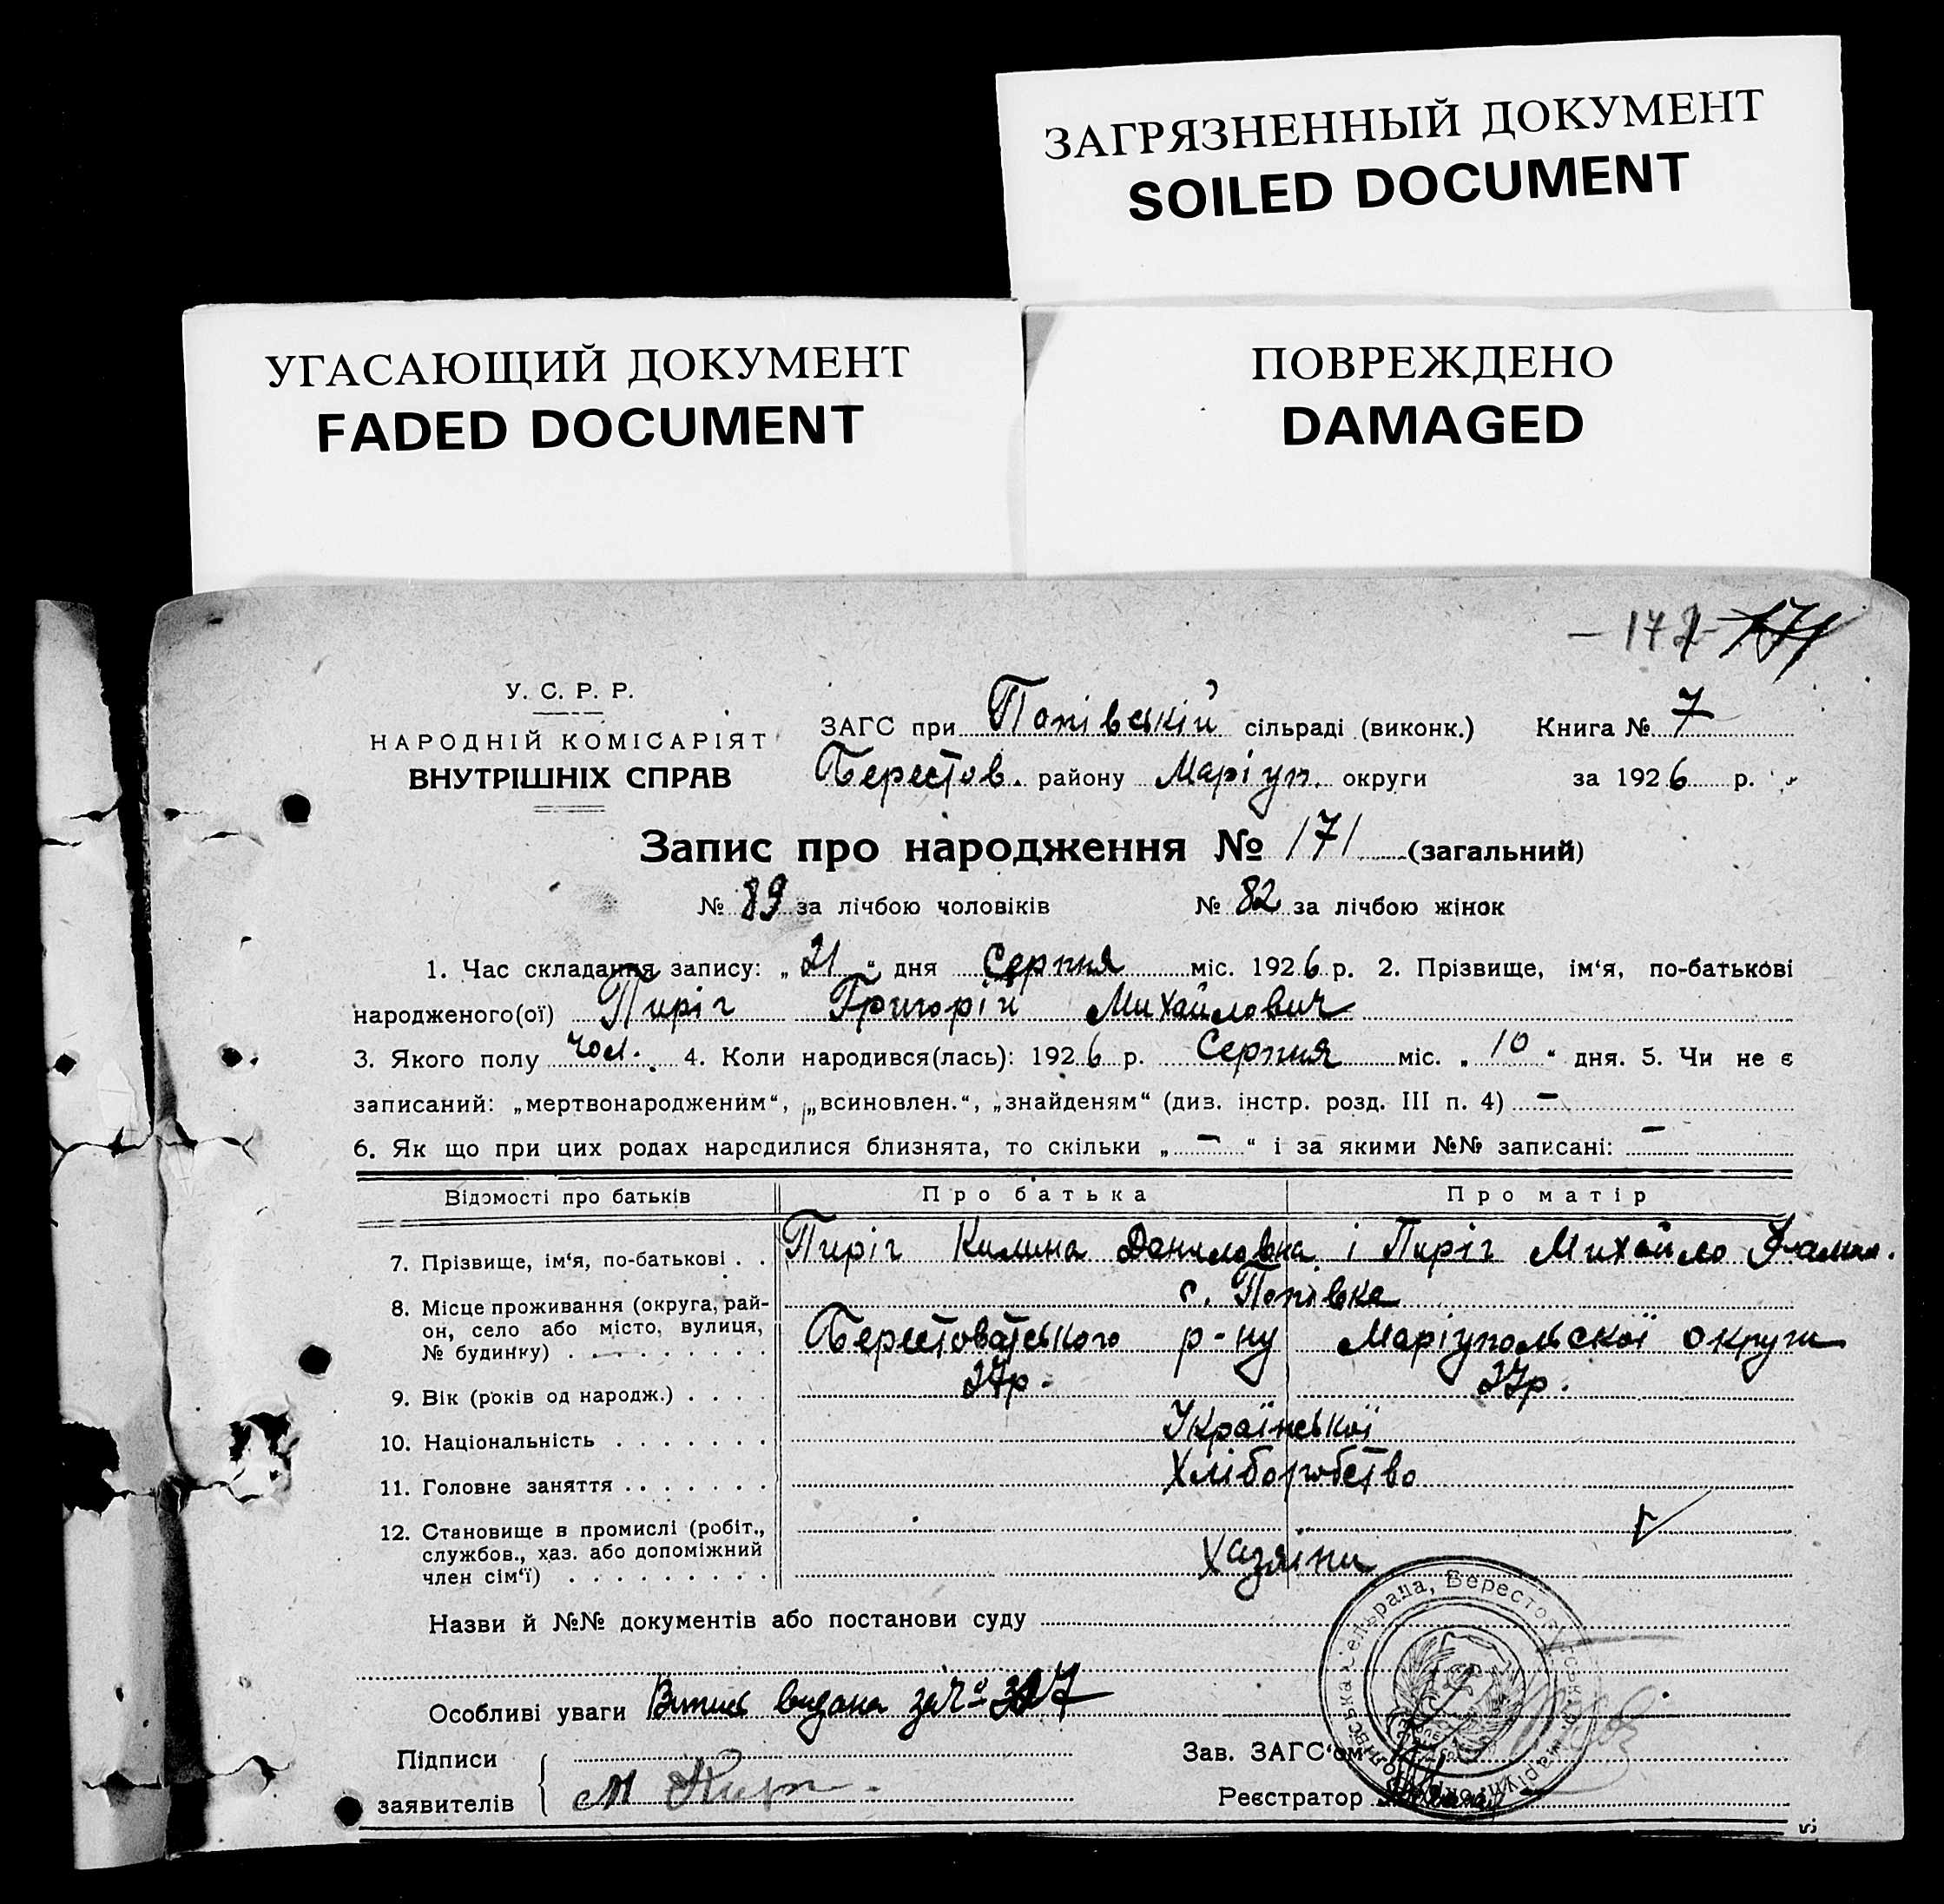 ЗАГРЯЗНЕННЫЙ ДОКУМЕНТ
SOILED DOCUMENT
УГАСАЮЩИЙ ДОКУМЕНТ
FADED DOCUMENT
ПОВРЕЖДЕНО
DAMAGED
171
У. С. Р. Р.
НАРОДНІЙ КОМІСАРІЯТ
ВНУТРІШНІХ СПРАВ
ЗАГС при Попівській сільраді (виконк.) Книга № 7
Берестов. району Маріуп. округи за 1926 р.
Запис про народження № 171 (загальний)
№ 89 за лічбою чоловіків № 82 за лічбою жінок
1. Час складання запису: „21“ дня Серпня міс. 1926 р. 2. Прізвище, ім‘я, по-батькові
народженого(ої) Пиріг Григорій Михайлович
3. Якого полу чол. 4. Коли народився(лась): 1926 р. Серпня міс. „10“ дня. 5. Чи не є
записаний: „мертвонародженим“, „всиновлен.“, „знайденям“ (див. інстр. розд. III п. 4) —
6. Як що при цих родах народилися близнята, то скільки „—“ і за якими №№ записані: —
Відомості про батьків Про батька Про матір
7. Прізвище, ім‘я, по-батькові . . Пиріг Килина Даниловна і Пиріг Михайло
8. Місце проживання (округа, рай-
он, село або місто, вулиця,
№ будинку) . . . . . . . . .
с. Попівка
Берестоватського р-ну Маріупольскої округи
9. Вік (років од народж.) . . . .
10. Національність . . . . . . . Української
11. Головне заняття . . . . . . . Хліборобство
12. Становище в промислі (робіт.,
службов., хаз. або допоміжний
член сім‘ї) . . . . . . . . .
Хазяїни
Назви й №№ документів або постанови суду
Особливі уваги Випис видана за
Підписи
заявителів
М Пиріг
Зав. ЗАГС‘ом
Реєстратор